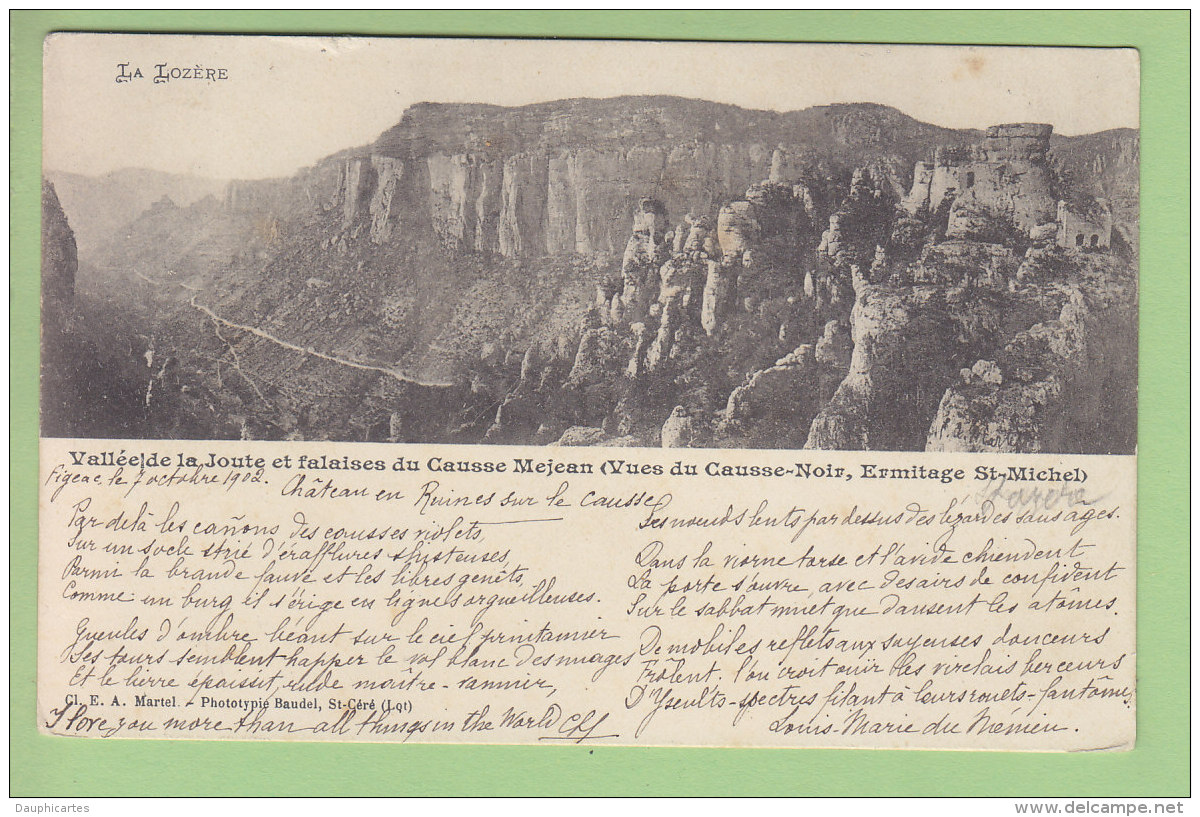 La Lozère
Vallée de la Joute et falaises du Causse Mejean (Vues du Causse-Noir, Ermitage St-Michel)
Figeac, le 7 octobre 1902.
Château en Ruines sur le causse
Par delà les cañons des causses violets,
Sur un socle strié d'éraflures shisteuses,
Parmi la brande fauve et les libres genêts,
Comme un burg il s'érige en lignes orgueilleuses.
Gueules d'ombre béant sur le ciel printannier
Ses tours semblent happer le vol blanc des nuages
Et le lierre épaissit, rude maître-vannier,
Ses noeuds lents par dessus des lézardes sans âges.
Dans la viorne torse et l'avide chiendent
La porte s'ouvre, avec des airs de confident
Sur le sabbat muet que dansent les atômes.
De mobiles reflets aux soyeuses douceurs
Frôlent. l'on croit ouïr les virelais berceurs
D'Yseults-spectres filant à leurs rouets-fantôme,
Louis-Marie du
Cl. E. A. Martel. - Phototypie Baudel, St-Céré (Lot)
I love you more than all things in the World
Dauphicartes
www.delcampe.net